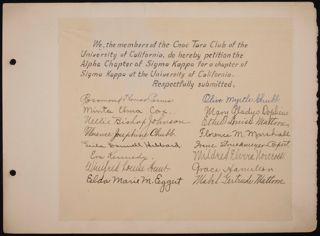 We, the members of the Cnoc Tara Club of the
University of California, do hereby petition the
Alpha Chapter of Sigma Kappa for a chapter of
Sigma Kappa at the University of California.
Respectfully submitted,
Minta Anna Cox
Nellie Bishop Johnson
Florence Josephine Chubb
Hibbard
Eva Kennedy
Winifred Louise Hunt
Elda Marie M. Eggert
Olive Myrtle Chubb
Mary Gladys
Ethel Louise Mattern
Florence M. Marshall
Mildred Elvira Norcross
Grace Hamilton
Mabel Gertrude Mattern